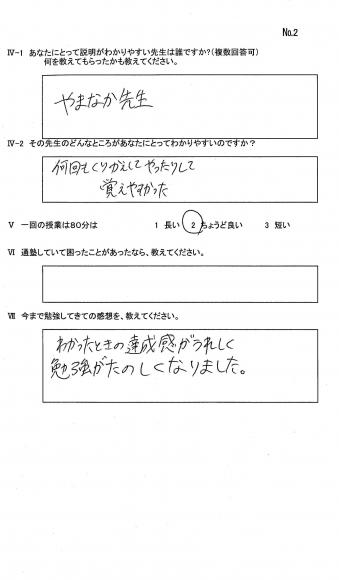 No.2
Ⅳ-1 あなたにとって説明がわかりやすい先生は誰ですか?(複数回答可)
何を教えてもらったかも教えてください。
やまなか先生
Ⅳ-2 その先生のどんなところがあなたにとってわかりやすいのですか?
何回もくりかえしてやったりして
覚えやすかった
Ⅴ 一回の授業は80分は 1 長い 2 ちょうど良い 3 短い
Ⅵ 通塾していて困ったことがあったなら、教えてください。
Ⅶ 今まで勉強してきての感想を、教えてください。
わかったときの達成感がうれしく
勉強がたのしくなりました。